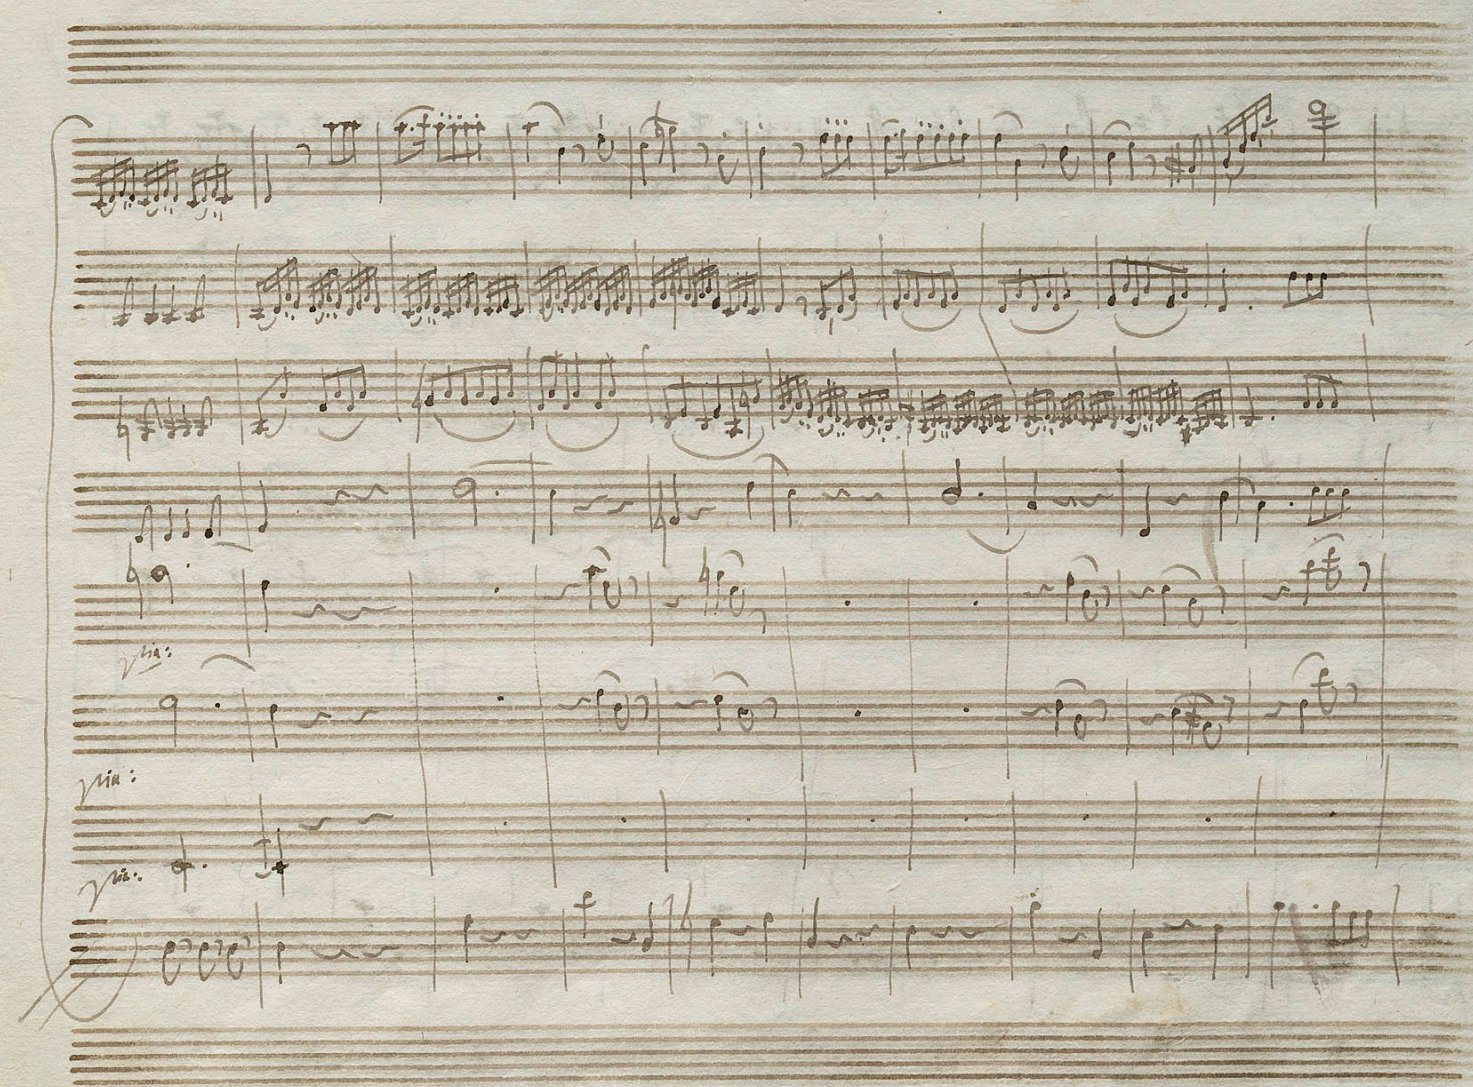 pia:
pia:
pia: